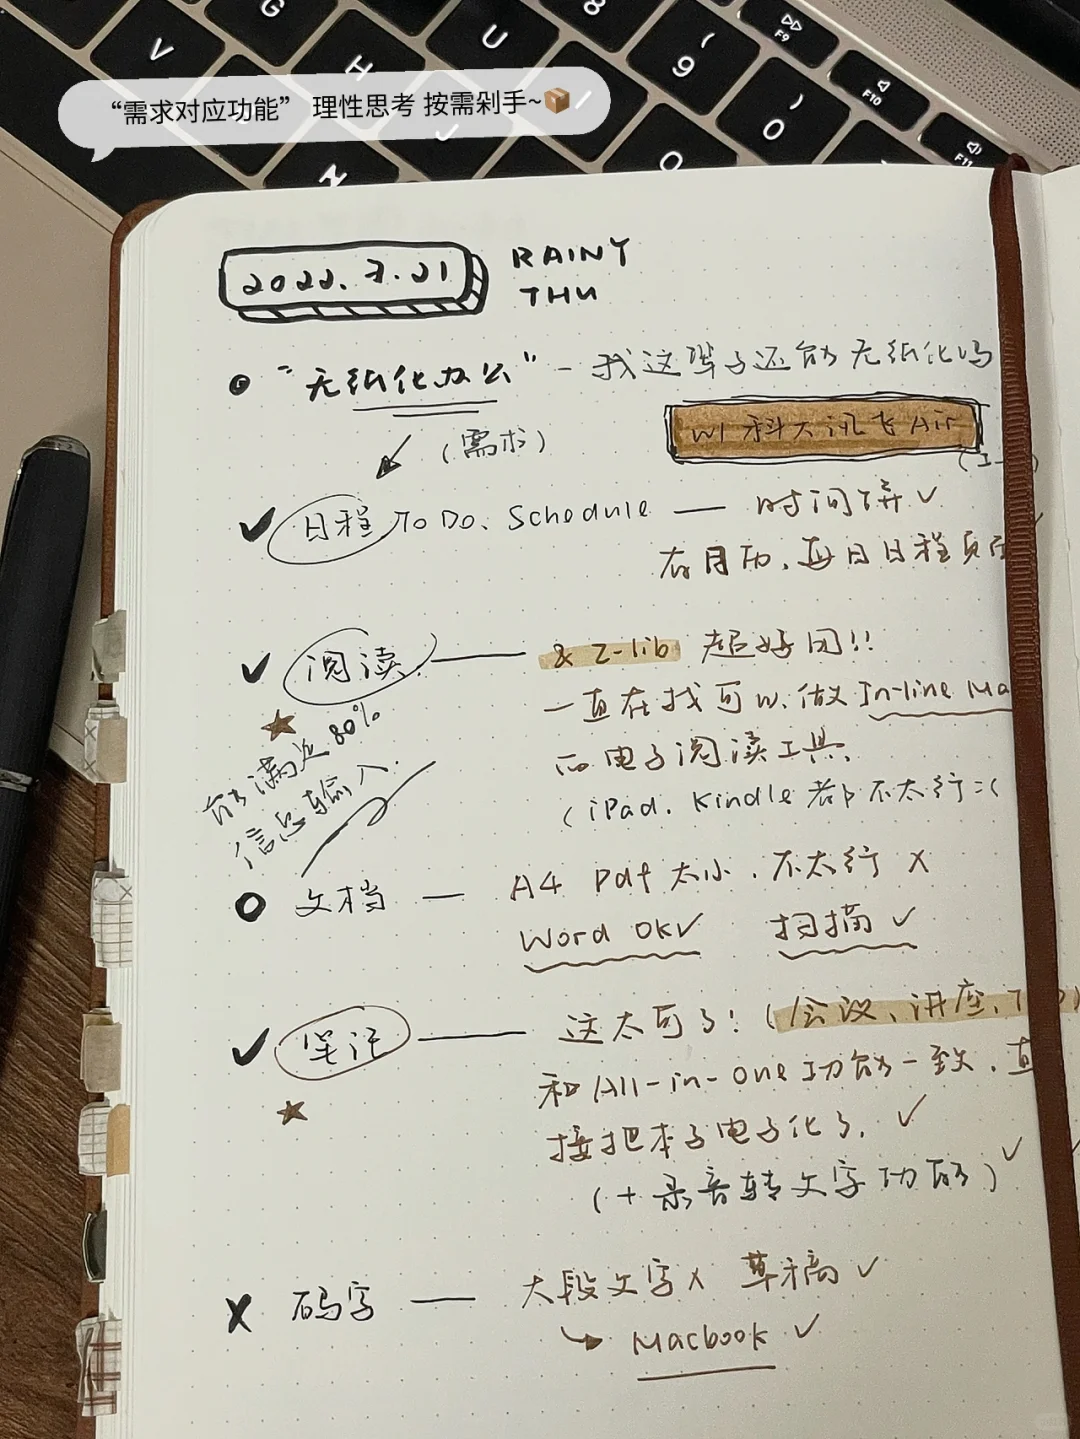 “需求对应功能” 理性思考 按需剁手~
G
V
H
U
J
I
N
O
8
( 9
) 0
F9
F10
F11
2022.7.21
RAINY
THU
“无纸化办公” — 我这辈子还能无纸化吗
W/ 科大讯飞 Air
(需求)
日程 To Do、Schedule — 时间饼 ✓
有月历、每日日程页面
✓ 阅读 — & Z-lib 超好用!!
一直在找可以做 In-line Ma
的电子阅读工具
(iPad、Kindle 都不太行:(
★
能满足80%
信息输入.
文档 — A4 Pdf 太小、不太行 X
Word OK✓ 扫描 ✓
✓ 笔记 — 这太可了! (会议、讲座、
★
和 All-in-one 功能一致、直
接把本子电子化了. ✓
(+ 录音转文字功能) ✓
X 码字 — 大段文字 X 草稿 ✓
↳ Macbook ✓